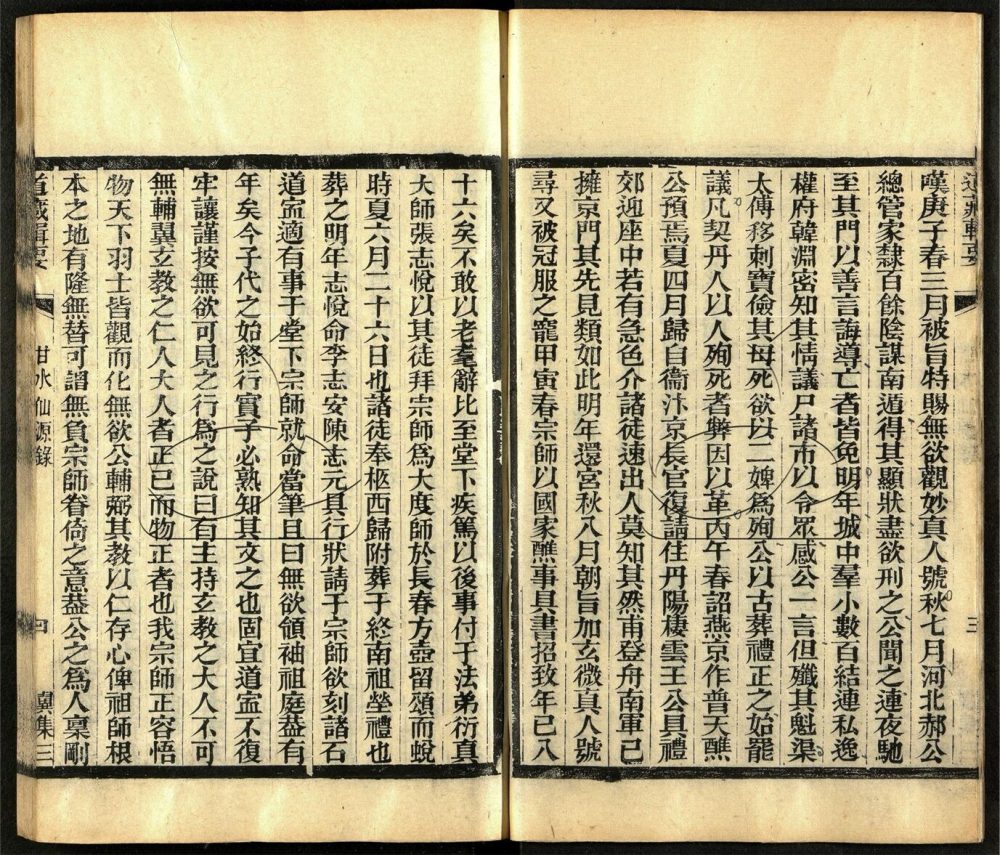 道藏輯要
三
嘆庚子春三月被旨特賜無欲觀妙真人號秋七月河北郝公
總管家隸百餘陰謀南遁得其顯狀盡欲刑之公聞之連夜馳
至其門以善言誨導亡者皆免明年城中羣小數百結連私逸
權府韓淵密知其情議尸諸市以令眾感公一言但殲其魁渠
太傅移剌寶儉其母死欲以二婢為殉公以古葬禮正之始罷
議凡契丹人以人殉死者弊因以革丙午春詔燕京作普天醮
公預焉夏四月歸自衞汴京長官復請住丹陽棲雲王公具禮
郊迎座中若有急色介諸徒速出人莫知其然甫登舟南軍已
擁京門其先見類如此明年還宮秋八月朝旨加玄微真人號
尋又被冠服之寵甲寅春宗師以國家醮事具書招致年已八
十六矣不敢以老羣辭比至堂下疾篤以後事付于法弟衍真
大師張志悅以其徒拜宗師為大度師於長春方壺留頌而蛻
時夏六月二十六日也諸徒奉柩西歸附葬于終南祖塋禮也
葬之明年志悅命李志安陳志元具行狀請于宗師欲刻諸石
道寍適有事于堂下宗師就命當筆且曰無欲領袖祖庭葢有
年矣今子代之始終行實子必熟知其文之也固宜道寍不復
牢讓謹按無欲可見之行為之說曰有主持玄教之大人不可
無輔翼立教之仁人大人者正已而物正者也我宗師正容悟
物天下羽士皆觀而化無欲公輔弼其教以仁存心俾祖師根
本之地有隆無替可謂無負宗師眷倚之意葢公之為人稟剛
道藏輯要
甘水仙源錄
四
翼集三